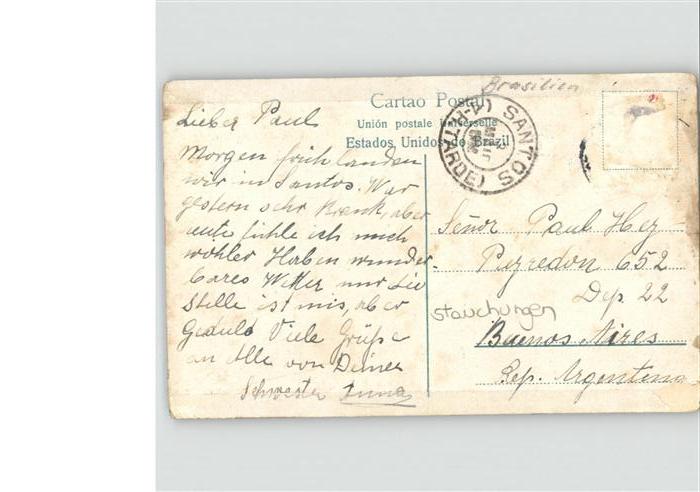 Brasilien
Cartao Postal
Unión postale Universelle
Estados Unidos do Brazil
SANTOS
(TARDE)
Lieber Paul
Morgen früh landen
wir in Santos. War
gestern sehr krank, aber
eute fühle ich mich
wohler Haben wunder-
bares Wetter nur die
Stelle ist mis, aber
Geduld Viele Grüße
an Alle von Deiner
Schwester Anna
Señor Paul Hez
Puyredon 652
Dep. 22
Stauchungen
Buenos Aires
Rep. Argentina